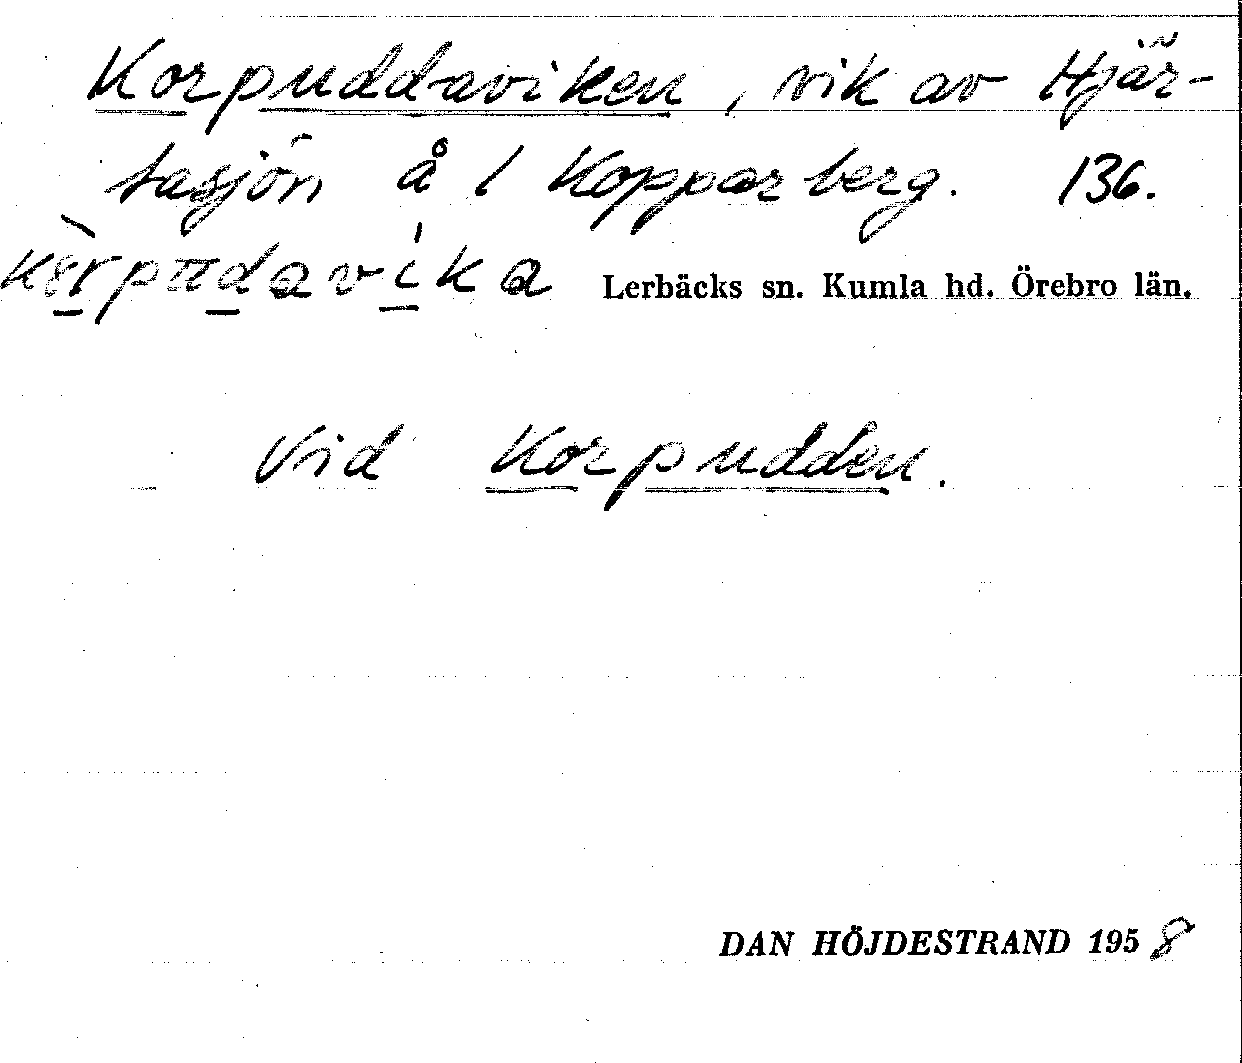 Korpuddaviken, vik av Hjär-
tasjön å 1 Kopparberg. 136.
Lerbäcks sn. Kumla hd. Örebro län.
Vid Korpudden.
DAN HÖJDESTRAND 1958